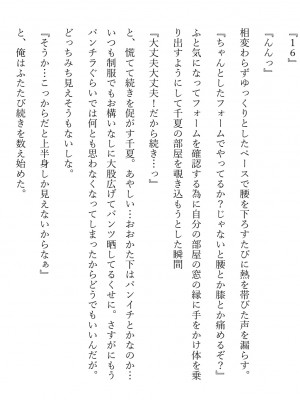 『１６』
『んんっ』
相変わらずゆっくりとしたペースで腰を下ろすたびに熱を帯びた声を漏らす。
『ちゃんとしたフォームでやってるか？じゃないと腰とか膝とか痛めるぞ？』
ふと気になってフォームを確認する為に自分の部屋の窓の縁に手をかけ体を乗
り出すようにして千夏の部屋を覗き込もうとした瞬間
『大丈夫大丈夫！だから続き…っ』
と、慌てて続きを促がす千夏。あやしい…おおかた下はパンイチとかなのか…
いつも制服でもお構いなしに大股広げてパンツ晒してるくせに。さすがにもう
パンチラぐらいでは何とも思わなくなってしまったからどうでもいいんだが。
どっちみち見えそうもないしな。
『そうか…こっからだと上半身しか見えないからなぁ』
と、俺はふたたび続きを数え始めた。